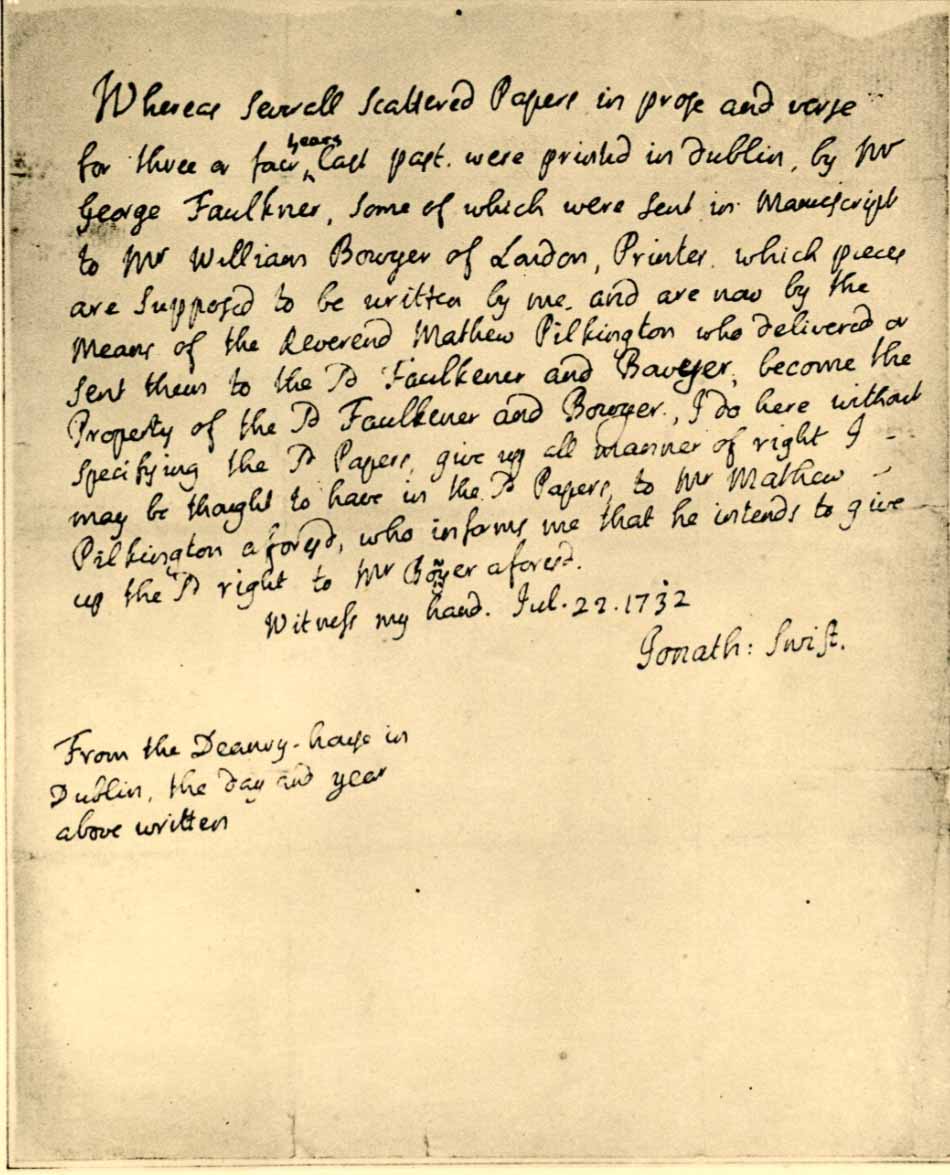 Whereas Severall Scattered Papers in prose and verse
for three or four years last past. were printed in Dublin, by Mr
George Faulkner, Some of which were sent in Manuscript
to Mr William Bowyer of London, Printer. which pieces
are Supposed to be written by me. and are now by the
Means of the Reverend Mathew Pilkington who delivered or
sent them to the Sd Faulkener and Bowyer, become the
Property of the Sd Faulkener and Bowyer, I do here without
specifying the Sd Papers, give up all manner of right I
may be thought to have in the Sd Papers, to Mr Mathew
Pilkington aforesd, who informs me that he intends to give
up the Sd right to Mr Bowyer aforesd.
Witness my hand. Jul. 22. 1732
Jonath: Swift.
From the Deanry-house in
Dublin, the day and year
above written